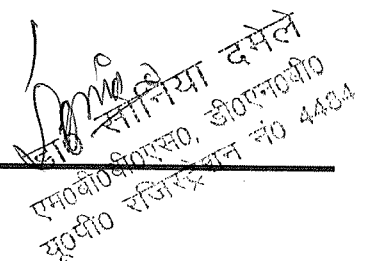 डा० सोनिया दमेले
एम०बी०बी०एस०, डी०एन०बी०
यू०पी० रजिस्ट्रेशन नं० 4404